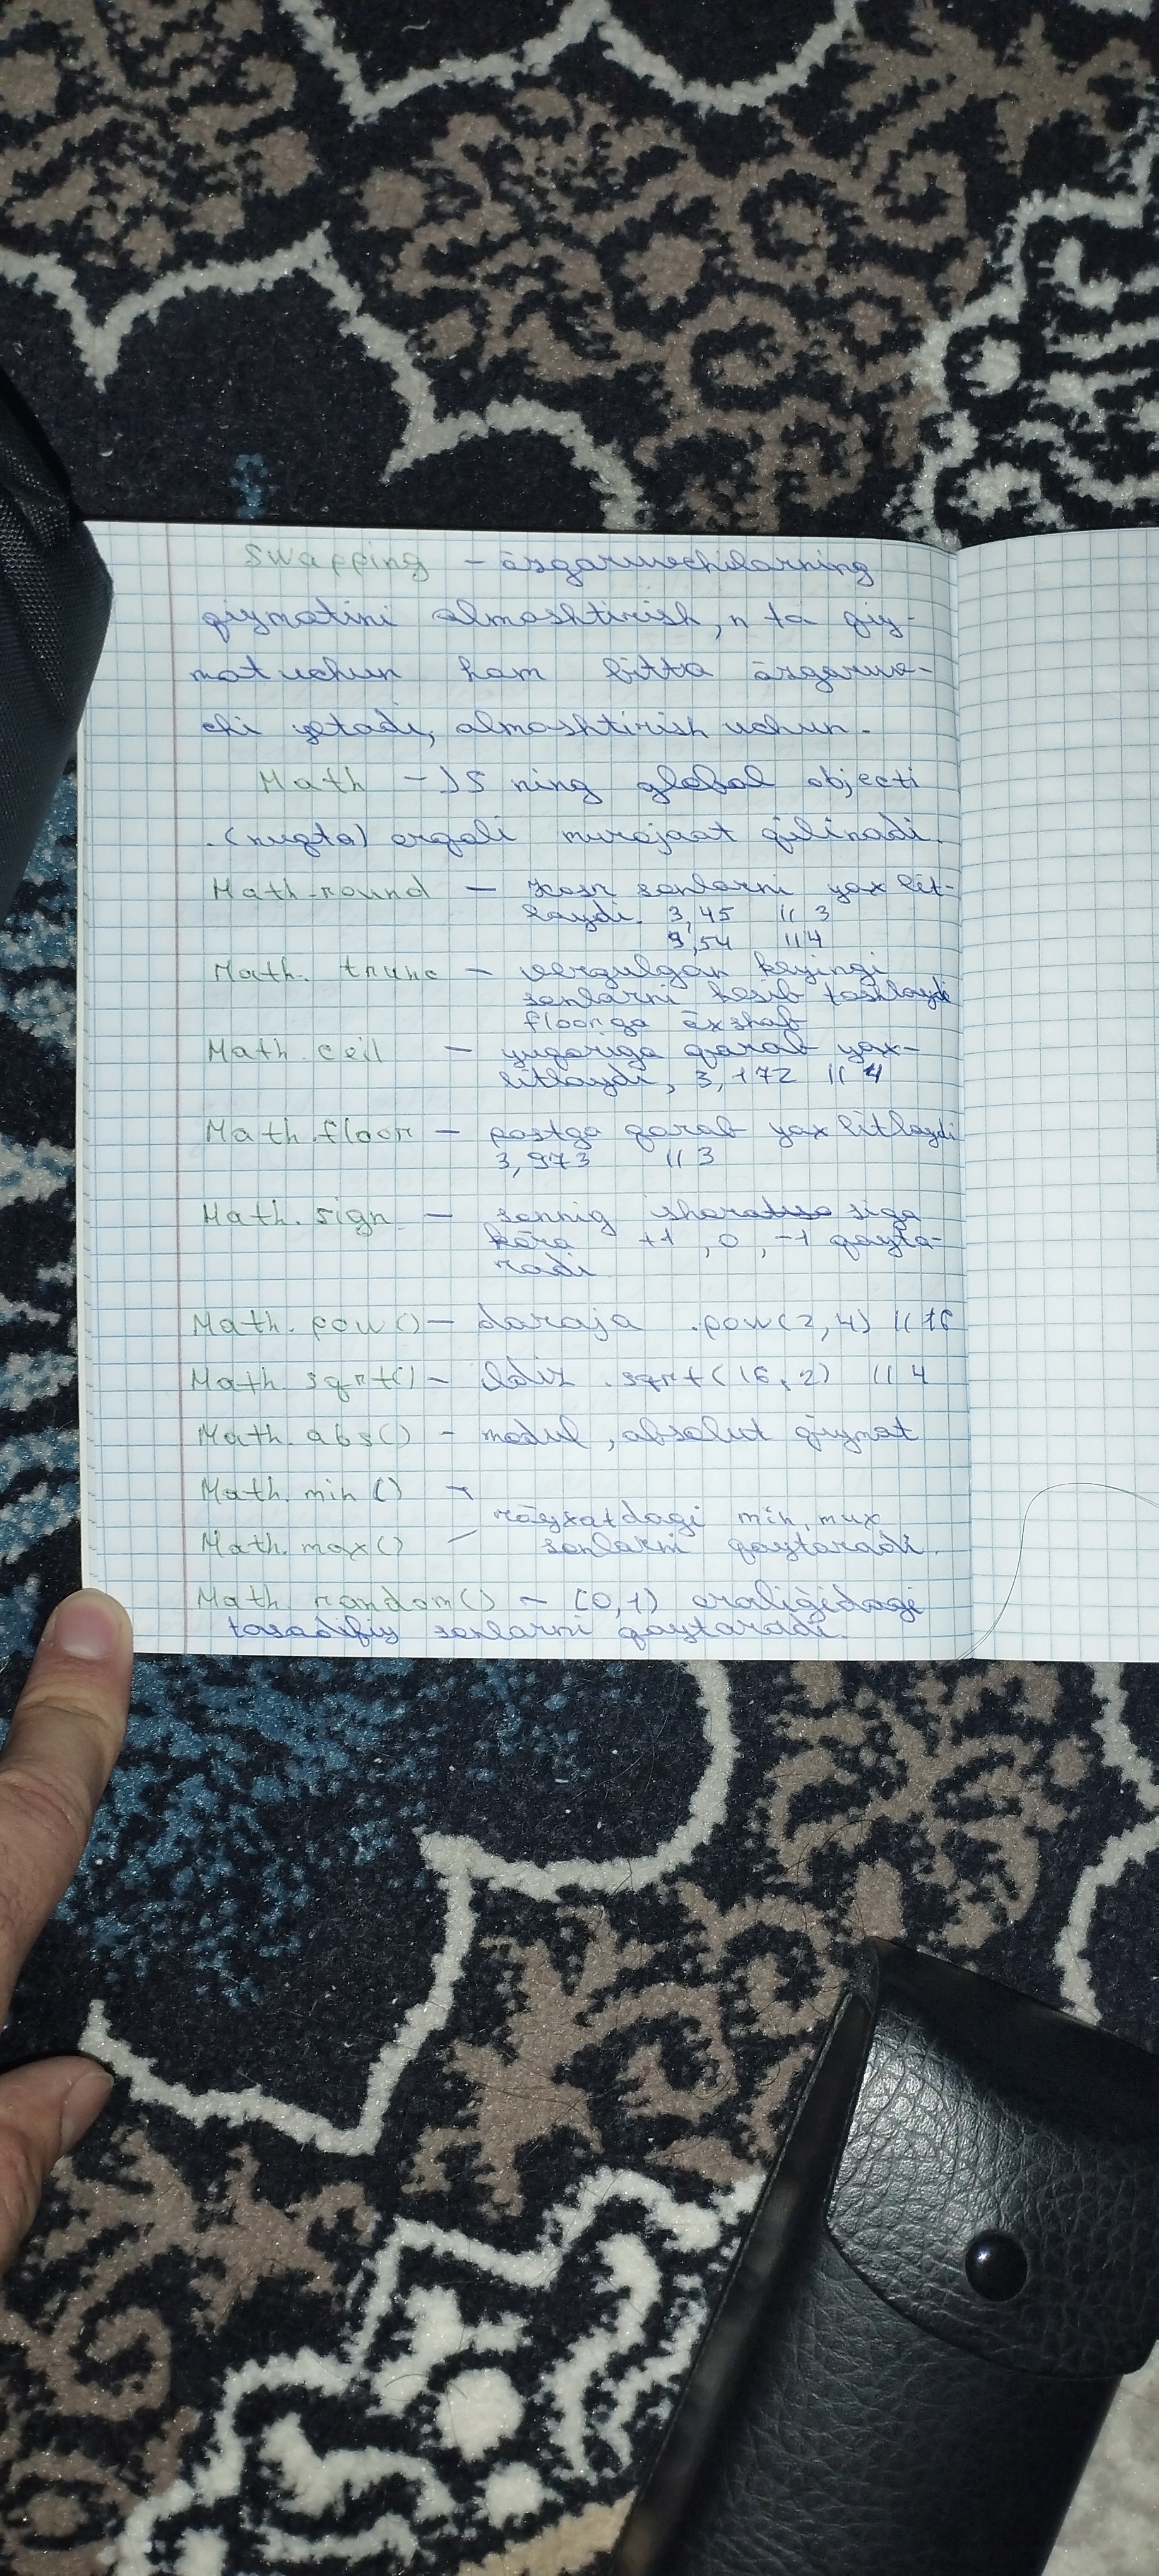 Swapping – õzgaruvchilarning
qiymatini almashtirish, n ta qiy-
mat uchun ham bitta õzgaruv-
chi yetadi, almashtirish uchun.
Math – JS ning global objecti
. (nuqta) orqali murojaat qilinadi.
Math.round – Kasr sonlarni yaxlit-
laydi. 3,45 // 3
3,54 // 4
Math.trunc – verguldan keyingi
sonlarni kesib tashlaydi
floorga õxshab
Math.ceil – yuqoriga qarab yax-
litlaydi, 3,172 // 4
Math.floor – pastga qarab yaxlitlaydi
3,973 // 3
Math.sign – sonnig ishorasiga
kõra +1, 0, -1 qayta-
radi
Math.pow() – daraja .pow(2,4) // 16
Math.sqrt() – Ildiz .sqrt(16,2) // 4
Math.abs() – modul, absolut qiymat
Math.min() –
rõyxatdagi min, max
Math.max() – sonlarni qaytaradi.
Math.random() – (0,1) oralig̃idagi
tasadifiy sonlarni qaytaradi.